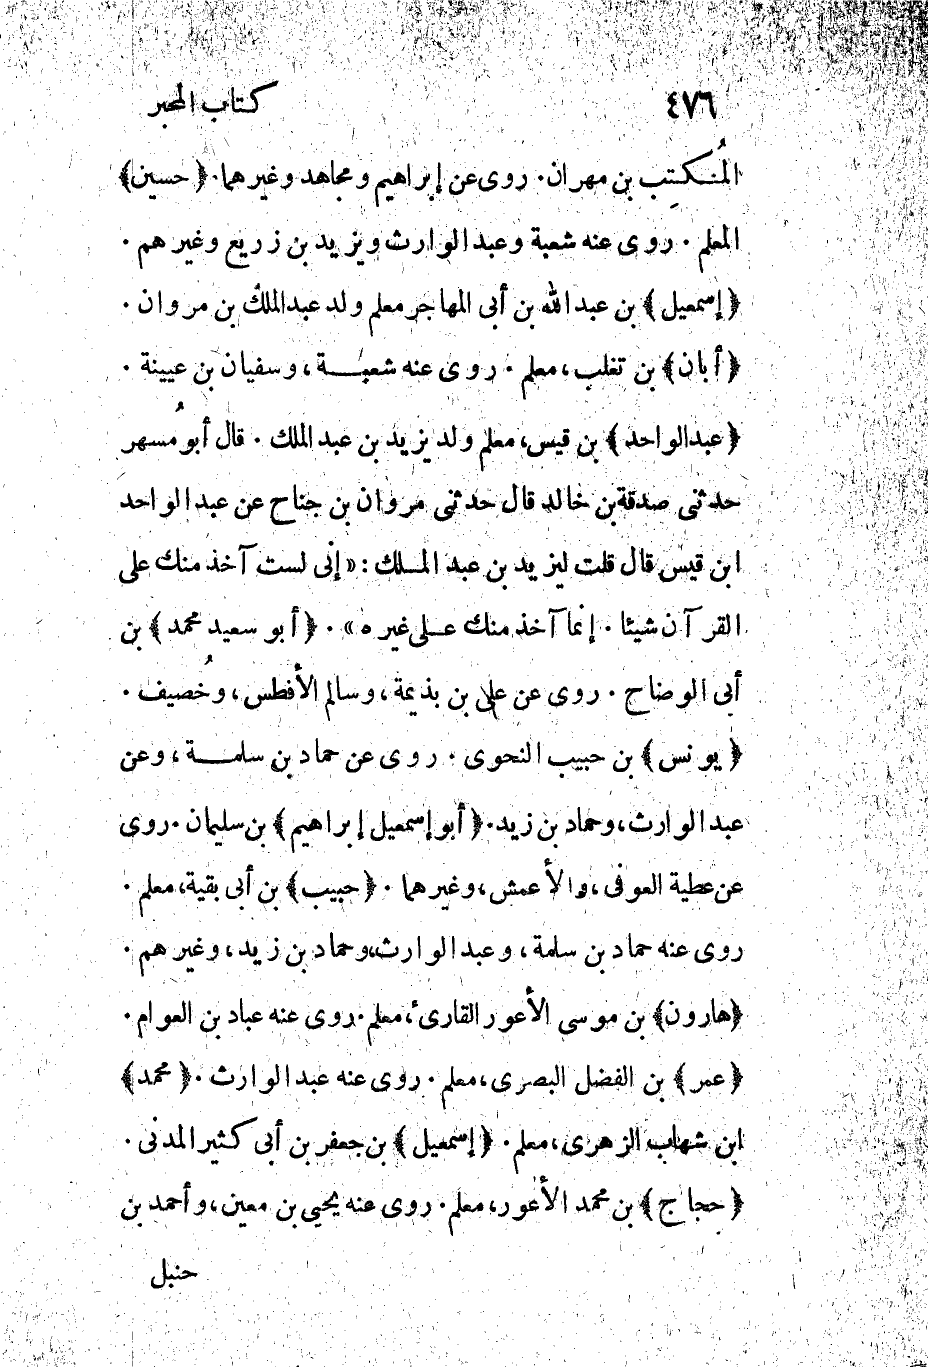 ٤٧٦ كتاب المحبر
المُكتِب بن مهران. روى عن إبراهيم و مجاهد وغيرهما. ﴿حسين﴾
المعلم. روى عنه شعبة وعبد الوارث ويزيد بن زريع وغيرهم.
﴿إسمعيل﴾ بن عبد الله بن أبى المهاجر معلم ولد عبد الملك بن مروان.
﴿أبان﴾ بن تغلب، معلم. روى عنه شعبة، وسفيان بن عيينة.
﴿عبد الواحد﴾ بن قيس، معلم ولد يزيد بن عبد الملك. قال أبو مُسهر
حدثنى صدقة بن خالد قال حدثنى مروان بن جناح عن عبد الواحد
ابن قيس قال قلت ليزيد بن عبد الملك: «إنى لست آخذ منك على
القرآن شيئا. إنما آخذ منك على غيره». ﴿أبو سعيد محمد﴾ بن
أبى الوضاح. روى عن على بن بذيمة، وسالم الأفطس، وخُصيف.
﴿يونس﴾ بن حبيب النحوى. روى عن حماد بن سلمة، وعن
عبد الوارث، وحماد بن زيد. ﴿أبو إسمعيل إبراهيم﴾ بن سليمان. روى
عن عطية العوفى، والأعمش، وغيرهما. ﴿حبيب﴾ بن أبى بقية، معلم.
روى عنه حماد بن سلمة، وعبد الوارث، وحماد بن زيد، وغيرهم.
﴿هارون﴾ بن موسى الأعور القارئ، معلم. روى عنه عباد بن العوام.
﴿عمر﴾ بن الفضل البصرى، معلم. روى عنه عبد الوارث. ﴿محمد﴾
ابن شهاب الزهرى، معلم. ﴿إسمعيل﴾ بن جعفر بن أبى كثير المدنى.
﴿حجاج﴾ بن محمد الأعور، معلم. روى عنه يحيى بن معين، وأحمد بن
حنبل